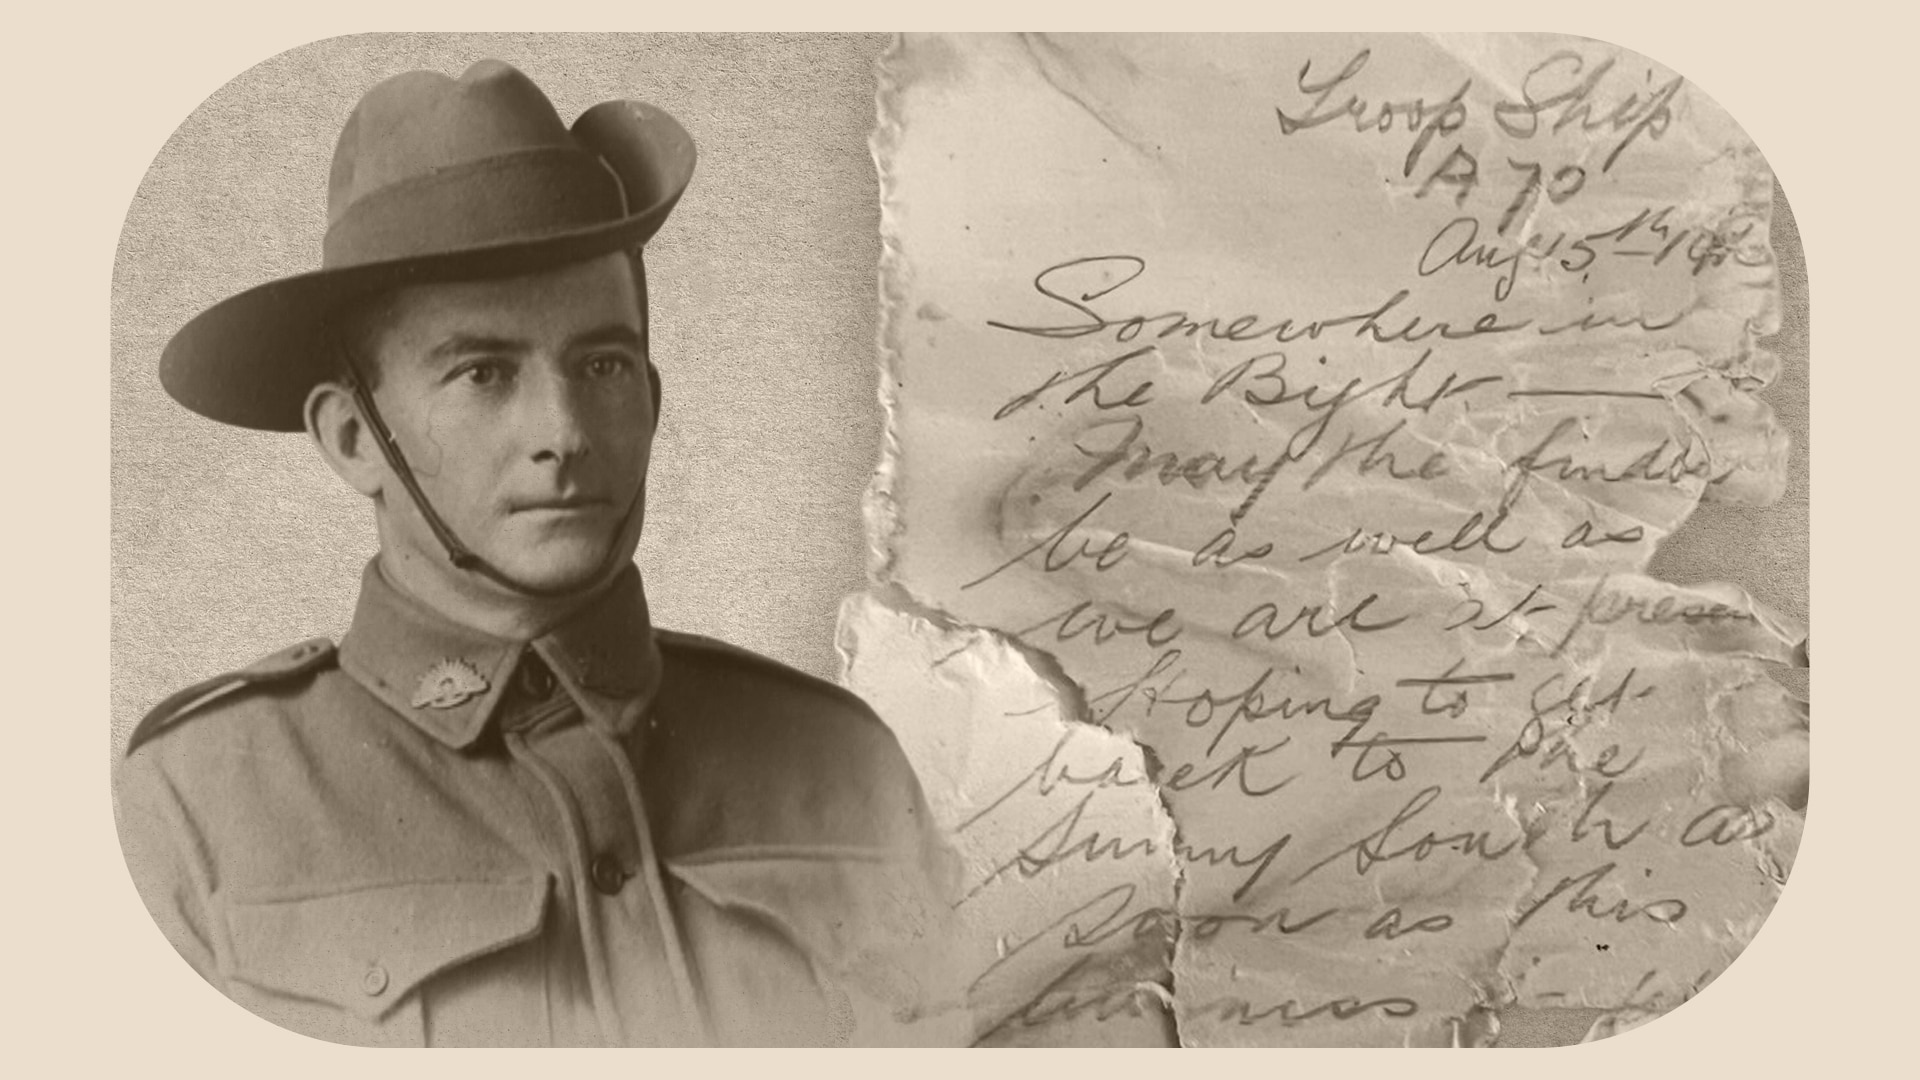 Troop Ship
A 70
Aug 15th 1916
Somewhere in
the Bight —
May the finder
be as well as
we are at present
Hoping to get
back to the
Sunny South as
Soon as this
business is